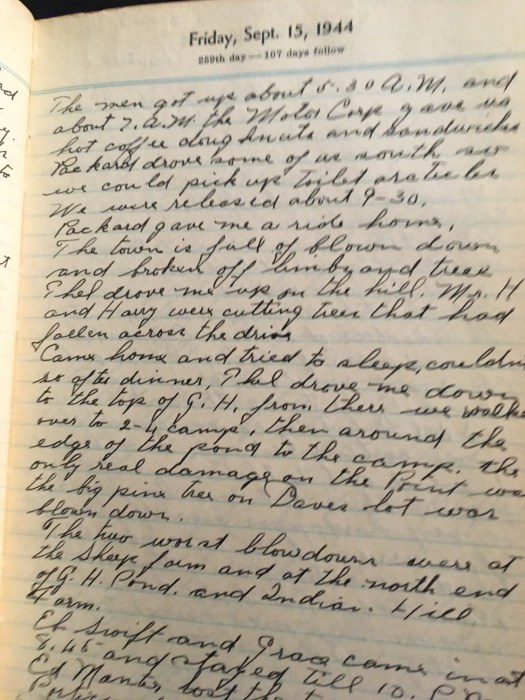 Friday, Sept. 15, 1944
259th day — 107 days follow
The men got up about 5.30 A.M. and
about 7. A.M. the Motor Corp gave us
hot coffee doughnuts and sandwiches
Packard drove some of us south so
we could pick up toilet articles
We were released about 9-30.
Packard gave me a ride home.
The town is full of blown down
and broken off limbs and trees
Thel drove me up on the hill. Mr. H
and Harry were cutting trees that had
fallen across the drive
Came home and tried to sleep, couldn
so after dinner, Thel drove me down
to the top of G. H. from there we walke
over to 2-4 camp, then around the
edge of the pond to the camp. The
only real damage on the Point was
the big pine tree on Daves lot was
blown down.
The two worst blowdowns were at
the sheep farm and at the north end
of G. H. Pond. and Indian. Hill
Farm.
Eb Swift and Grace came in at
8.45 and stayed till 10.
Ed lost